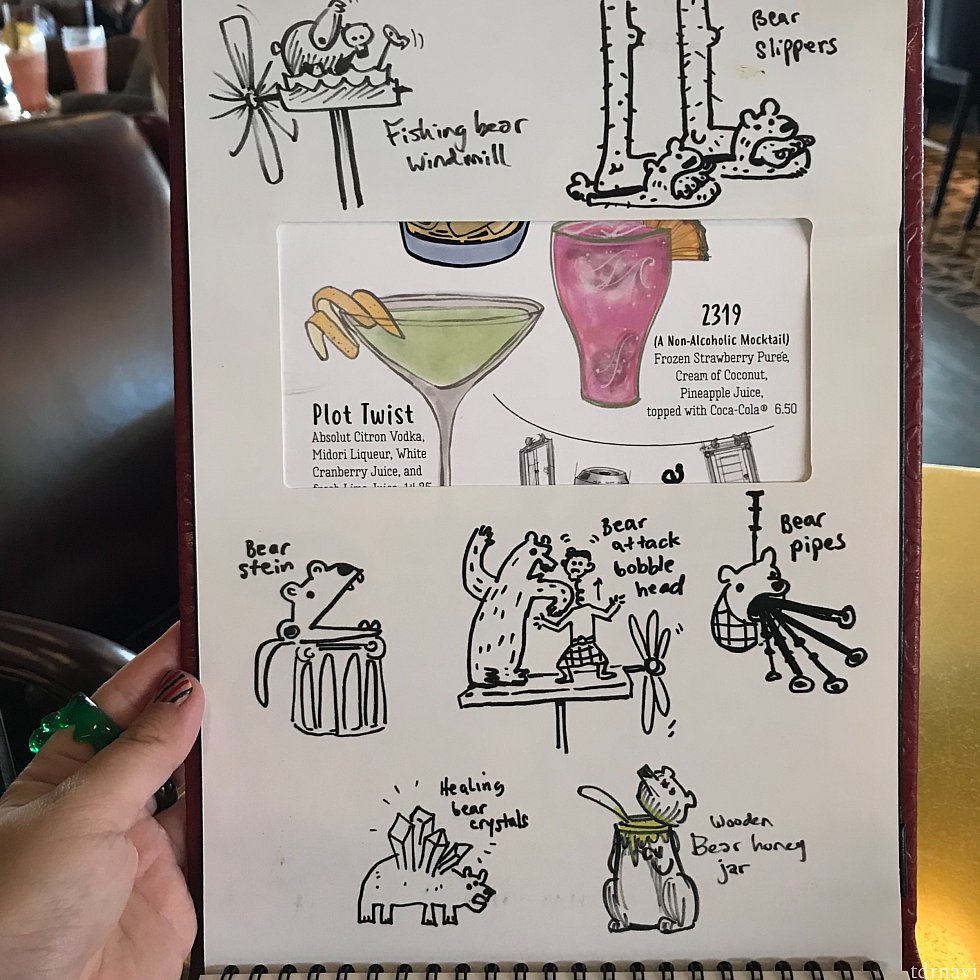 Bear
slippers
Fishing bear
windmill
2319
(A Non-Alcoholic Mocktail)
Frozen Strawberry Pureé,
Cream of Coconut,
Pineapple Juice,
topped with Coca-Cola® 6.50
Plot Twist
Absolut Citron Vodka,
Midori Liqueur, White
Cranberry Juice, and
fresh Lime Juice
Bear
stein
Bear
attack
bobble
head
Bear
pipes
Healing
bear
crystals
Wooden
Bear honey
jar
tdrnavi